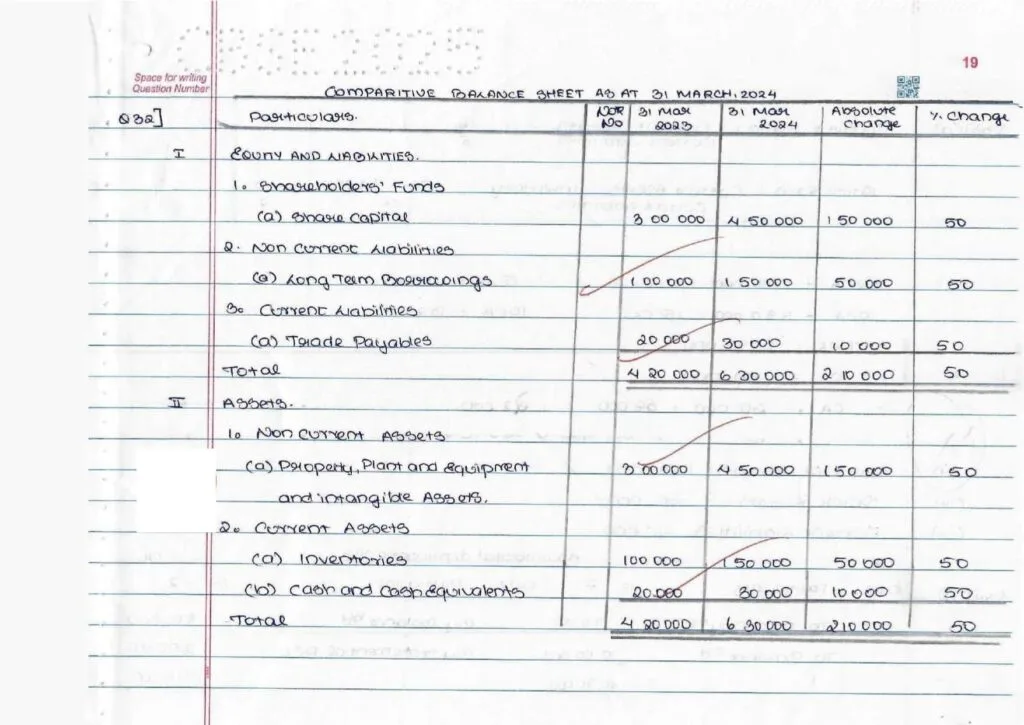 CBSE 2025
19
Space for writing
Question Number
COMPARITIVE BALANCE SHEET AS AT 31 MARCH, 2024
Q32] Particulars. Note No 31 Mar 2023 31 Mar 2024 Absolute change % change
I EQUITY AND LIABILITIES.
1. Shareholders' Funds
(a) Share Capital 3 00 000 4 50 000 1 50 000 50
2. Non Current Liabilities
(a) Long Term Borrowings 1 00 000 1 50 000 50 000 50
3. Current Liabilities
(a) Trade Payables 20 000 30 000 10 000 50
Total 4 20 000 6 30 000 2 10 000 50
II Assets.
1. Non Current Assets
(a) Property, Plant and Equipment 3 00 000 4 50 000 1 50 000 50
and intangible Assets.
2. Current Assets
(a) Inventories 100 000 1 50 000 50 000 50
(b) Cash and Cash Equivalents 20.000 30 000 10 000 50
Total 4 20 000 6 30 000 210000 50